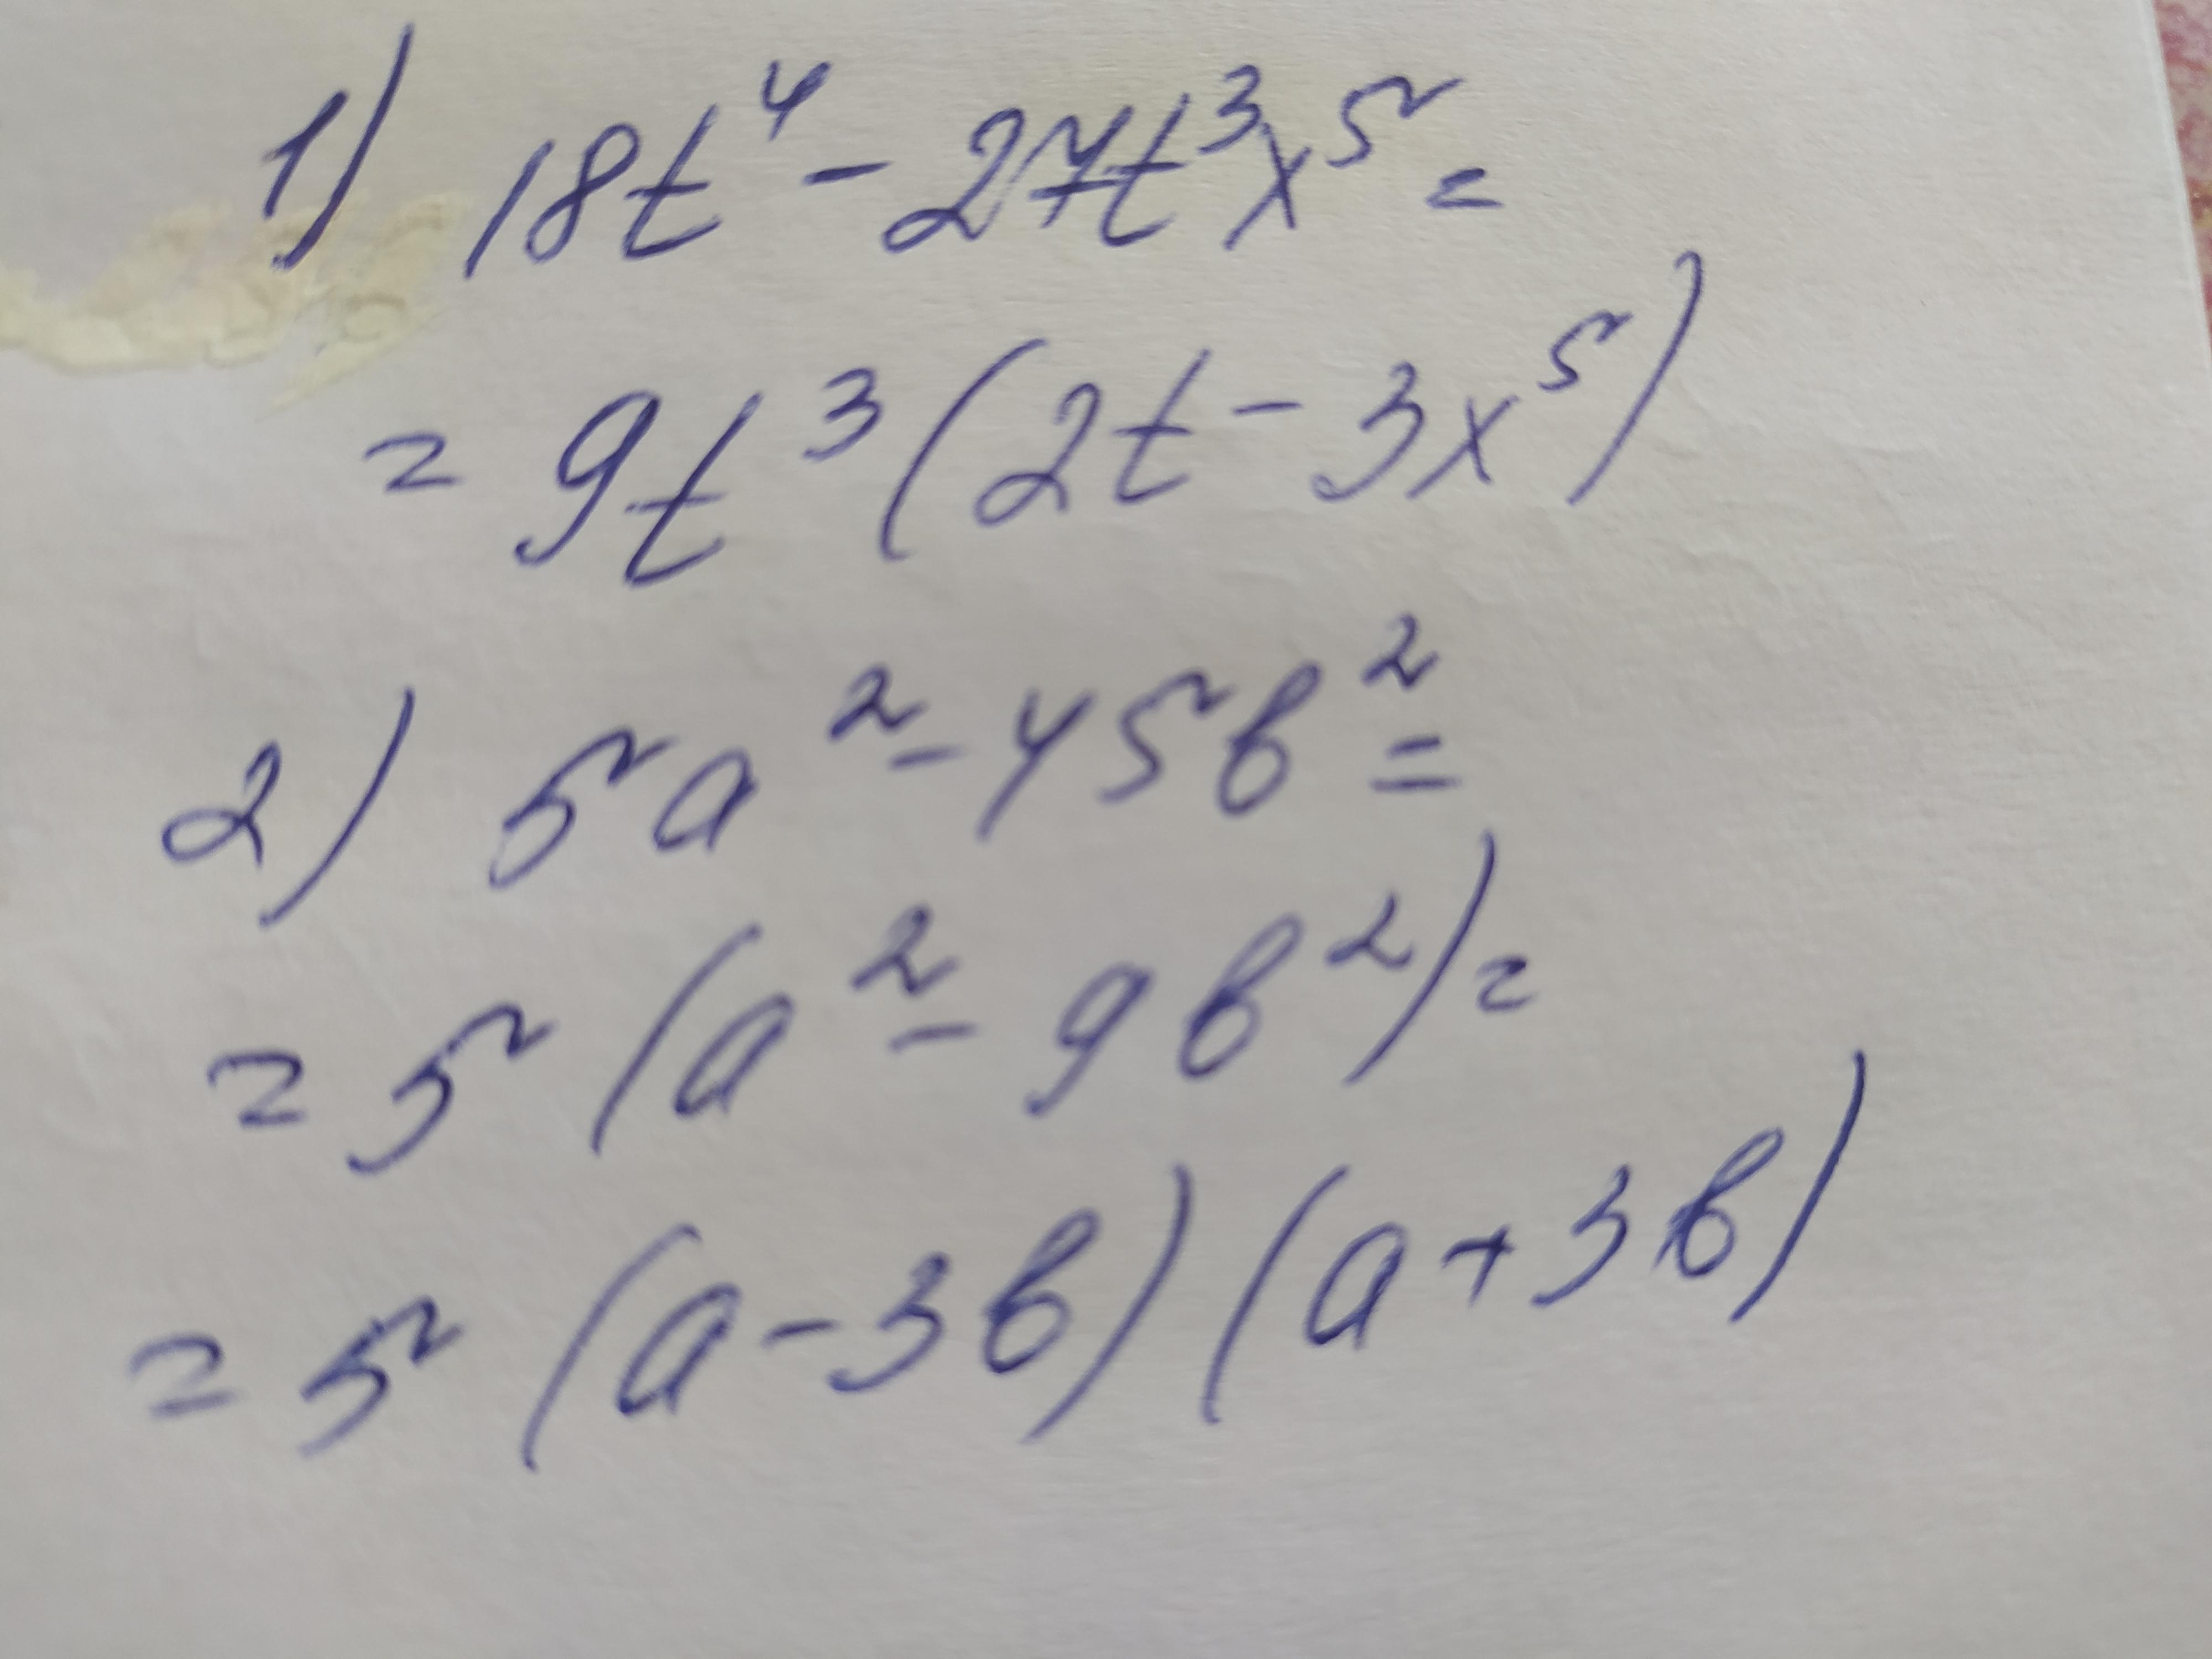 1) 18t⁴ - 27t³x⁵ =
= 9t³(2t - 3x⁵)
2) 5a² - 45b² =
= 5(a² - 9b²) =
= 5(a - 3b)(a + 3b)